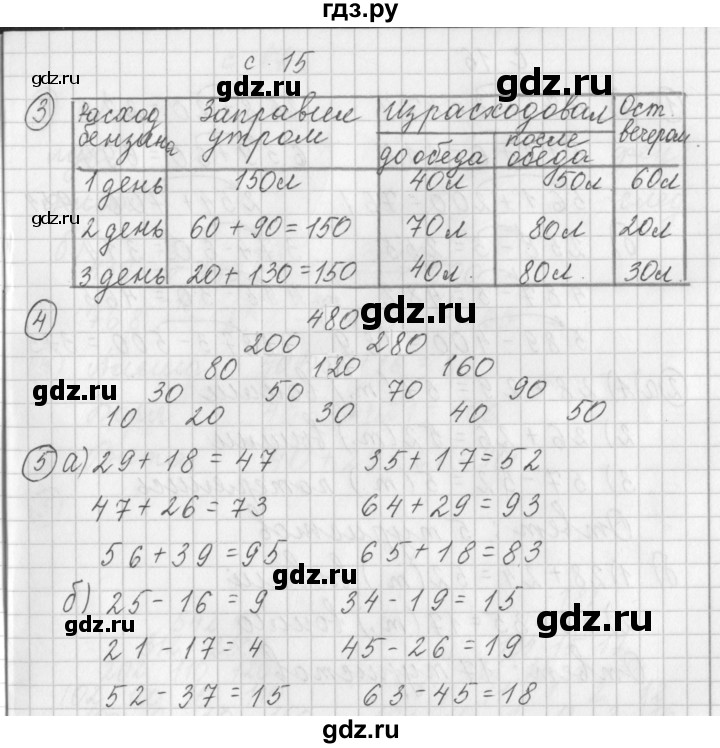 гдз.ру
с. 15
3 Расход бензина Заправили утром Израсходовал Ост. вечером
до обеда после обеда
1 день 150л 40л 50л 60л
2 день 60 + 90 = 150 70л 80л 20л
3 день 20 + 130 = 150 40л. 80л. 30л.
4 480
200 280
80 120 160
30 50 70 90
10 20 30 40 50
5 а) 29 + 18 = 47 35 + 17 = 52
47 + 26 = 73 64 + 29 = 93
56 + 39 = 95 65 + 18 = 83
б) 25 - 16 = 9 34 - 19 = 15
21 - 17 = 4 45 - 26 = 19
52 - 37 = 15 63 - 45 = 18
gdz.ru
gdz.ru
gdz.ru
gdz.ru
gdz.ru
gdz.ru
gdz.ru
gdz.ru
gdz.ru
gdz.ru
gdz.ru
gdz.ru
gdz.ru